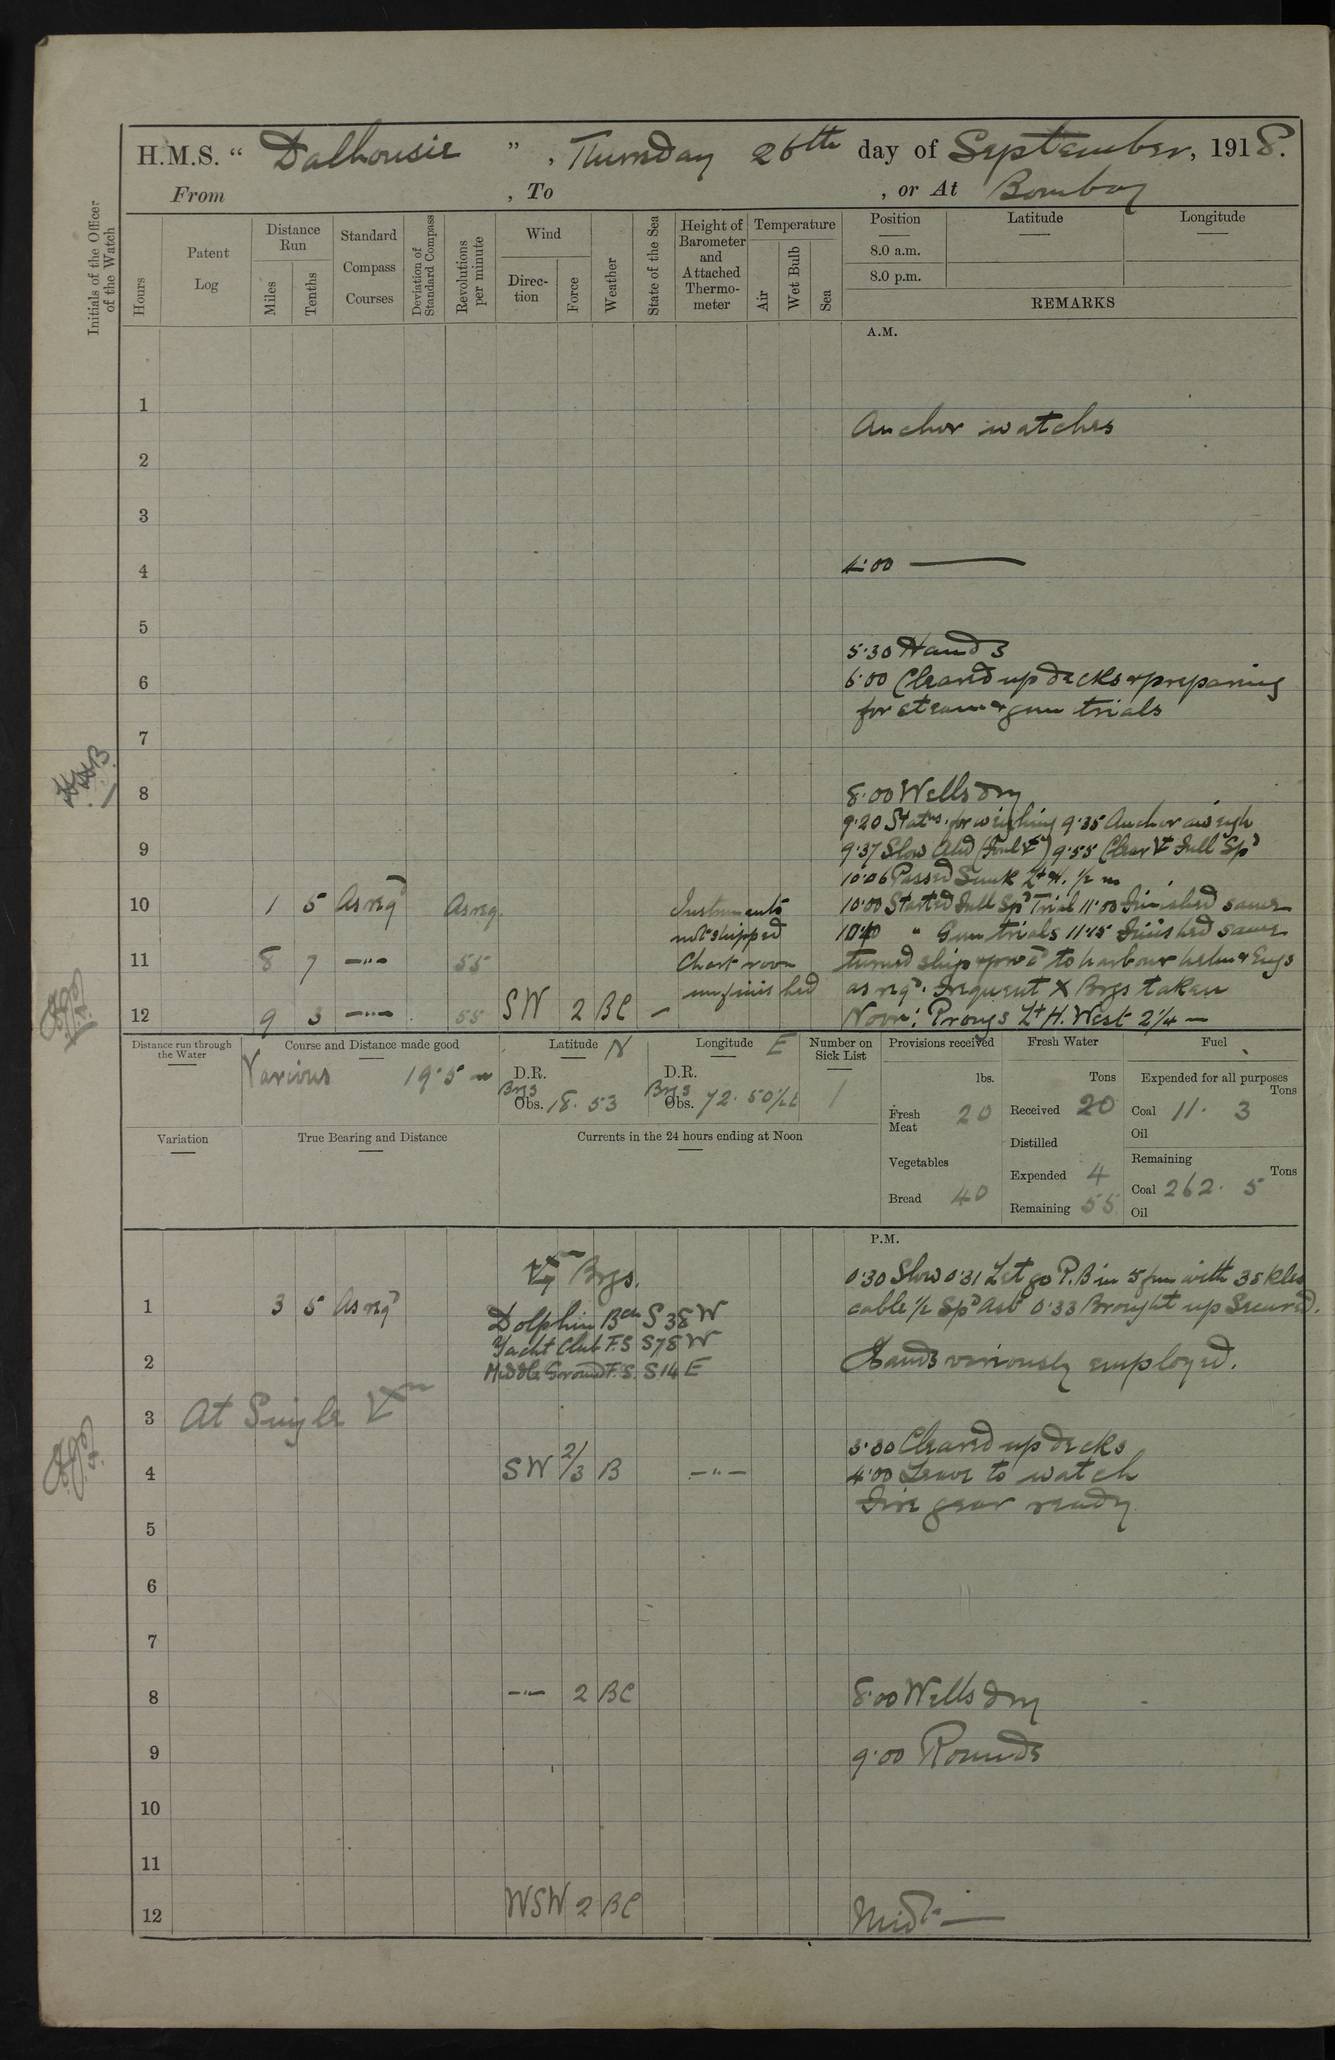 H.M.S. “ Dalhousie ” , Thursday 26th day of September, 1918.
From , To , or At Bombay
Initials of the Officer of the Watch
Hours
Patent Log
Distance Run
Miles
Tenths
Standard Compass Courses
Deviation of Standard Compass
Revolutions per minute
Wind
Direction
Force
Weather
State of the Sea
Height of Barometer and Attached Thermometer
Temperature
Air
Wet Bulb
Sea
Position Latitude Longitude
8.0 a.m.
8.0 p.m.
REMARKS
A.M.
1
Anchor watches
2
3
4 4·00 ———
5
5·30 Hands
6 6·00 Cleared up decks & preparing
for steam & gun trials
7
8 8·00 Wells dry
9·20 Statns. for weighing 9·35 Anchor aweigh
9 9·37 Slow Ahd 9·55 Clear Full Spd
10·06 Passed Sunk Lt H. ½ m
10 1 5 As reqd As req. Instruments 10·00 Started Full Spd Trial 11·00 Finished same
not shipped 10·40 " Gun trials 11·15 Finished same
11 8 7 —"— 55 Chart room turned ship & procd to harbour helm & Engs
unfinished as reqd. Frequent X Brgs taken
12 9 3 —"— 55 SW 2 BC — Noon: Prongs Lt H. West 2¼ —
Distance run through the Water
Course and Distance made good
Various 19·5 m
Latitude N
D.R.
Brgs
Obs. 18. 53
Longitude E
D.R.
Brgs
Obs. 72. 50½ E
Number on Sick List
1
Provisions received
lbs.
Fresh Meat 20
Vegetables
Bread 40
Fresh Water
Tons
Received 20
Distilled
Expended 4
Remaining 55
Fuel
Expended for all purposes
Tons
Coal 11. 3
Oil
Remaining
Tons
Coal 262. 5
Oil
Variation
True Bearing and Distance
Currents in the 24 hours ending at Noon
P.M.
Brgs. 0·30 Slow 0·31 Let go P.B in 5 fm with 3 skles
1 3 5 As reqd Dolphin Bcn S 38 W cable ½ Spd Ast 0·33 Brought up Secured.
Yacht Club F.S S 78 W
2 Middle Ground F.S. S 14 E Hands variously employed.
3 At Single
3·30 Cleared up decks
4 SW 2/3 B —"— 4·00 Leave to watch
Fire gear ready
5
6
7
8 —"— 2 BC 8·00 Wells dry
9 9·00 Rounds
10
11
12 WSW 2 BC Midt. —